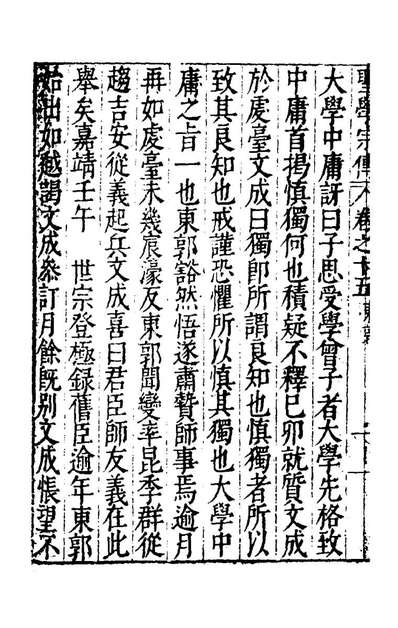 聖學宗傳 卷之十五 東郭
大學中庸訝曰子思受學曾子者大學先格致
中庸首揭慎獨何也積疑不釋已卯就質文成
於虔臺文成曰獨即所謂良知也慎獨者所以
致其良知也戒謹恐懼所以慎其獨也大學中
庸之旨一也東郭豁然悟遂肅贄師事焉逾月
再如虔臺未幾宸濠反東郭聞變率昆季群從
趨吉安從義起兵文成喜曰君臣師友義在此
舉矣嘉靖壬午 世宗登極錄舊臣逾年東郭
始出如越謁文成參訂月餘既別文成悵望不